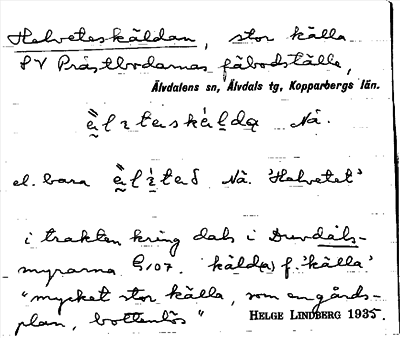 Helveteskäldan, stor källa
SV Prästbodarnas fäbodställe,
Älvdalens sn, Älvdals tg, Kopparbergs län.
Nå.
el. bara Nå. 'Helvetet'
i trakten kring dals i
myrarna G107. f. 'källa'
"mycket stor källa, som en gårds-
plan, bottenlös" HELGE LINDBERG 1935.